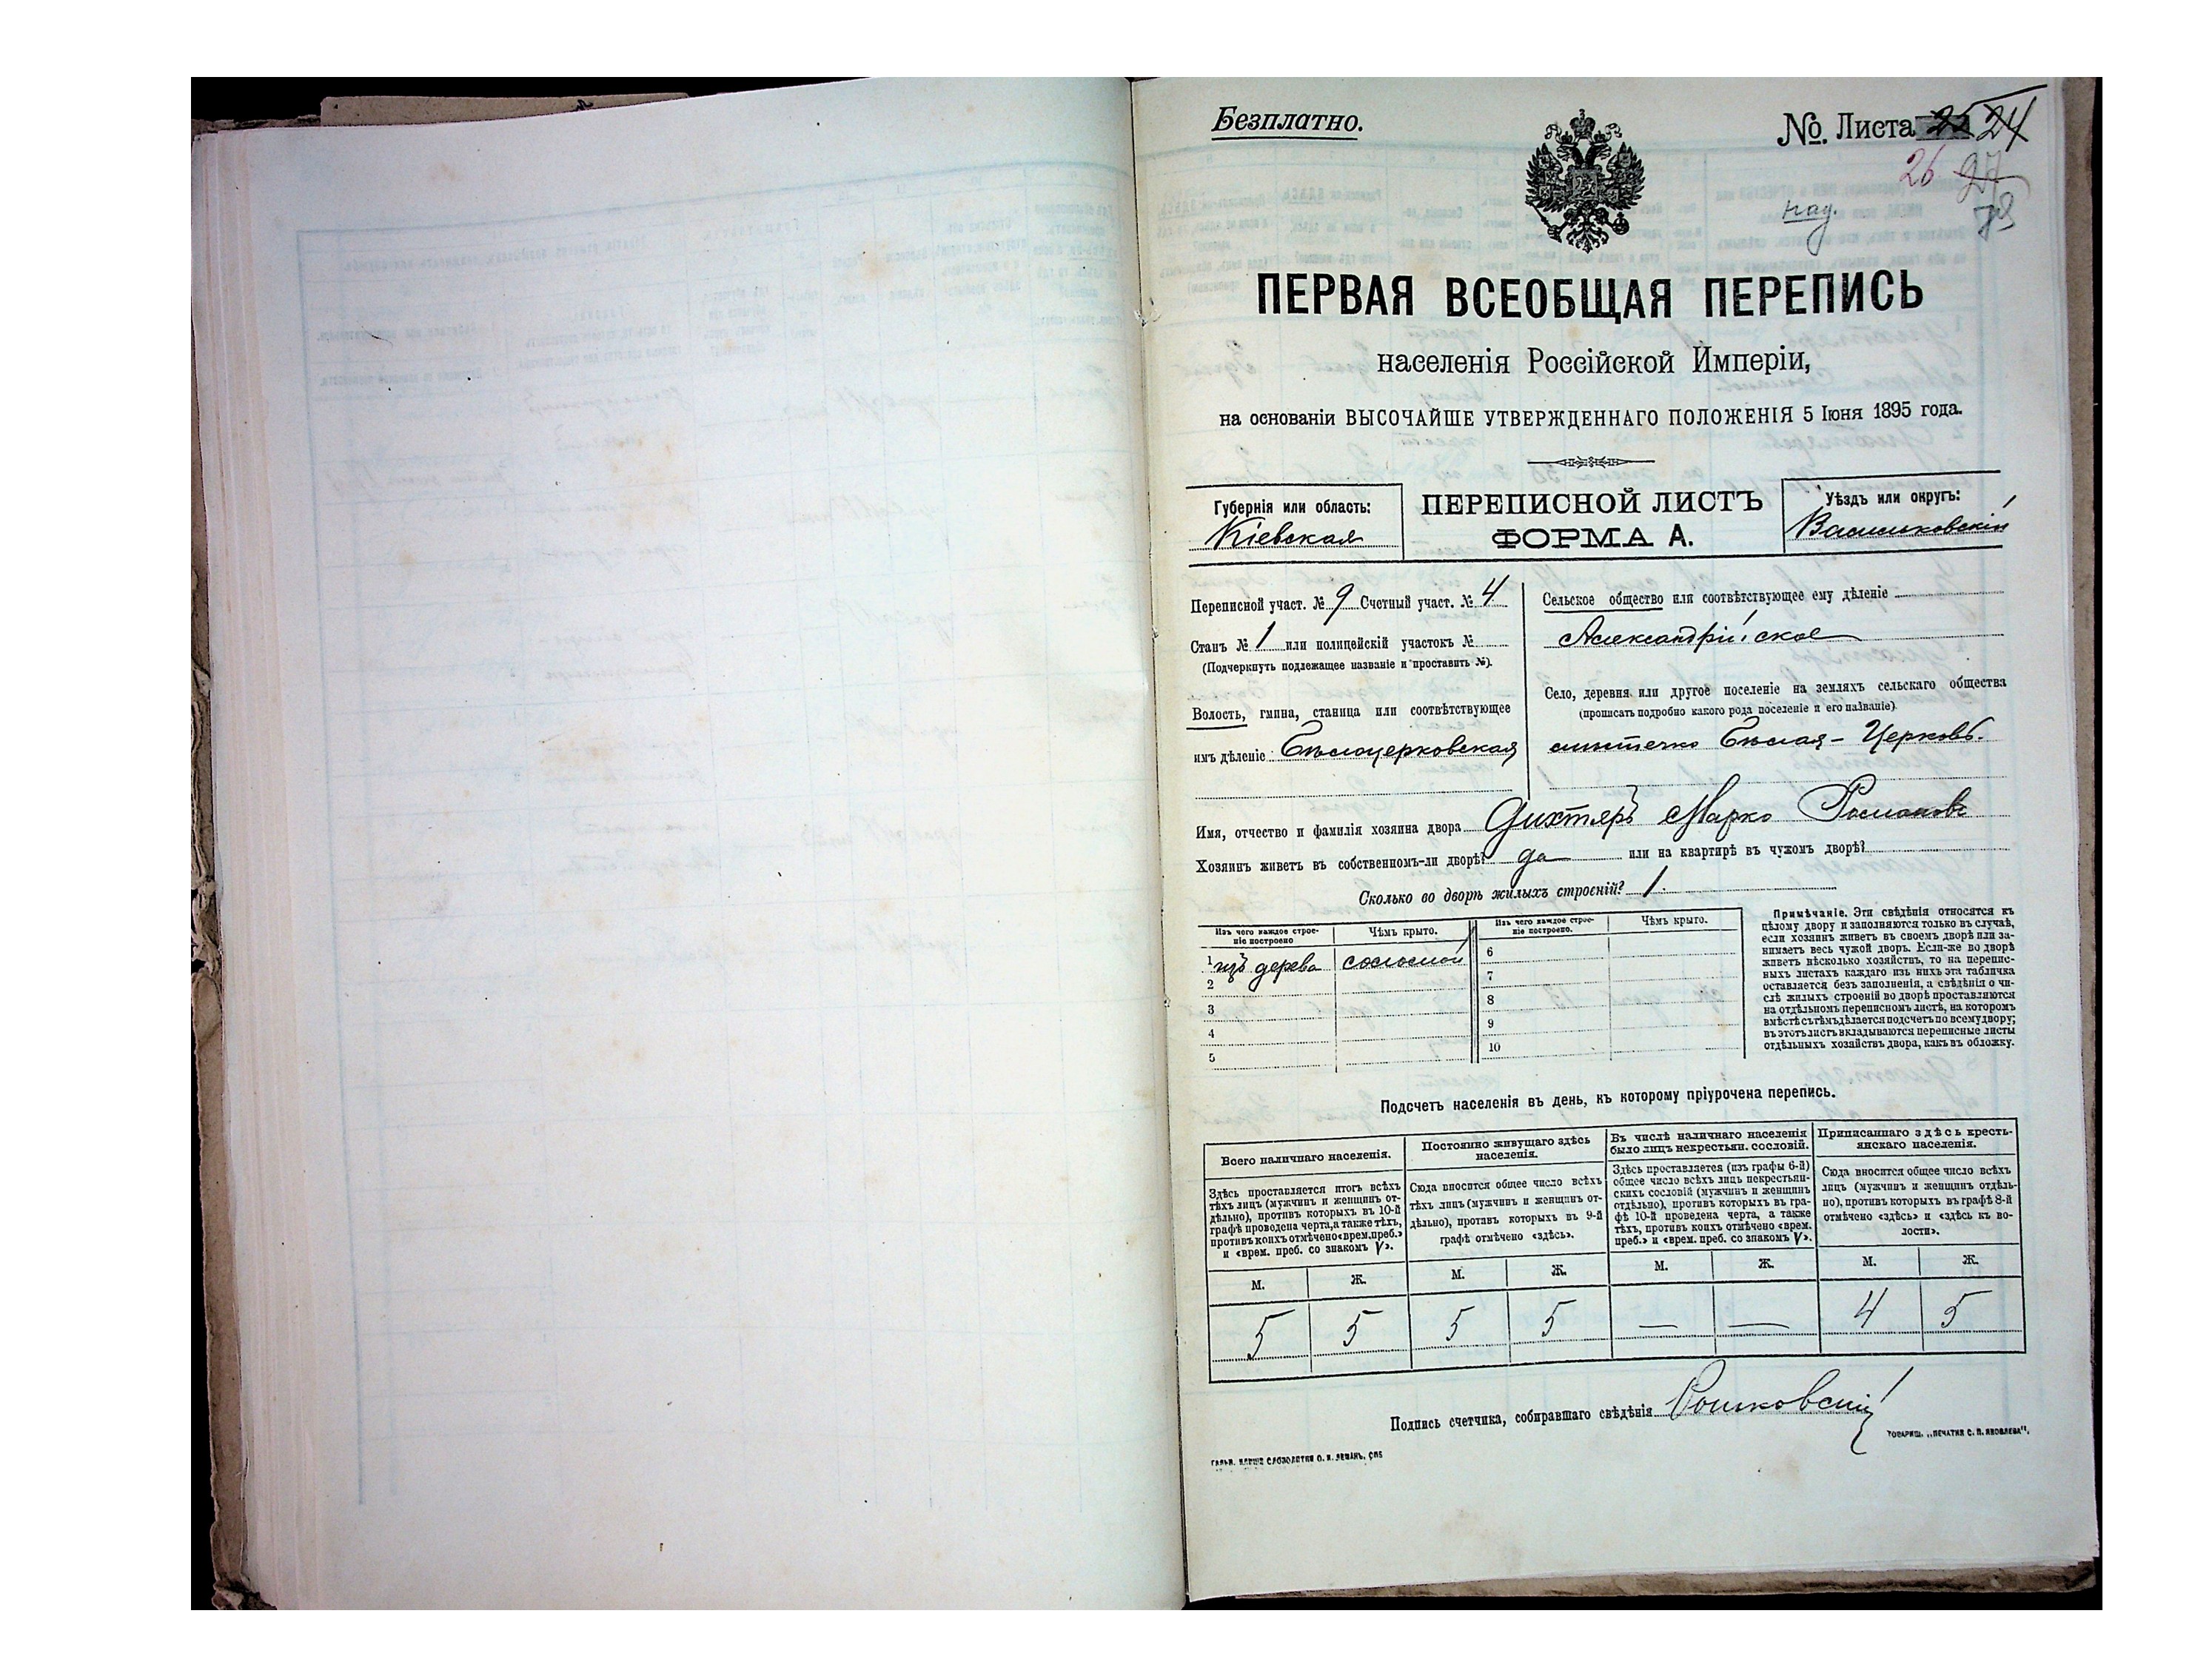 Безплатно.
№ Листа 25 24
26 27
над.
78
ПЕРВАЯ ВСЕОБЩАЯ ПЕРЕПИСЬ
населенія Россійской Имперіи,
на основаніи ВЫСОЧАЙШЕ УТВЕРЖДЕННАГО ПОЛОЖЕНІЯ 5 Іюня 1895 года.
Губернія или область:
Кіевская
ПЕРЕПИСНОЙ ЛИСТЪ
ФОРМА А.
Уѣздъ или округъ:
Васильковскій
Переписной участ. № 9 Счетный участ. № 4
Станъ № 1 или полицейскій участокъ №
(Подчеркнуть подлежащее названіе и проставить №).
Волость, гмина, станица или соотвѣтствующее
имъ дѣленіе Бѣлоцерковская
Сельское общество или соотвѣтствующее ему дѣленіе
Александрійское
Село, деревня или другое поселеніе на земляхъ сельскаго общества
(прописать подробно какого рода поселеніе и его названіе)
мѣстечко Бѣлая-Церковь.
Имя, отчество и фамилія хозяина двора Дихтярь Марко Романовъ
Хозяинъ живетъ въ собственномъ-ли дворѣ? да или на квартирѣ въ чужомъ дворѣ?
Сколько во дворѣ жилыхъ строеній? 1.
Изъ чего каждое строе-
ніе построено
Чѣмъ крыто.
Изъ чего каждое строе-
ніе построено.
Чѣмъ крыто.
1 изъ дерева соломой
2
3
4
5
6
7
8
9
10
Примѣчаніе. Эти свѣдѣнія относятся къ
цѣлому двору и заполняются только въ случаѣ,
если хозяинъ живетъ въ своемъ дворѣ или за-
нимаетъ весь чужой дворъ. Если-же во дворѣ
живетъ нѣсколько хозяйствъ, то на перепис-
ныхъ листахъ каждаго изъ нихъ эта табличка
оставляется безъ заполненія, а свѣдѣнія о чи-
слѣ жилыхъ строеній во дворѣ проставляются
на отдѣльномъ переписномъ листѣ, на которомъ
вмѣстѣ съ тѣмъ дѣлается подсчетъ по всему двору;
въ этотъ листъ вкладываются переписные листы
отдѣльныхъ хозяйствъ двора, какъ въ обложку.
Подсчетъ населенія въ день, къ которому пріурочена перепись.
Всего наличнаго населенія.
Здѣсь проставляется итогъ всѣхъ
тѣхъ лицъ (мужчинъ и женщинъ от-
дѣльно), противъ которыхъ въ 10-й
графѣ проведена черта, а также тѣхъ,
противъ коихъ отмѣчено «врем. преб.»
и «врем. преб. со знакомъ V».
Постоянно живущаго здѣсь
населенія.
Сюда вносится общее число всѣхъ
тѣхъ лицъ (мужчинъ и женщинъ от-
дѣльно), противъ которыхъ въ 9-й
графѣ отмѣчено «здѣсь».
Въ числѣ наличнаго населенія
было лицъ некрестьян. сословій.
Здѣсь проставляется (изъ графы 6-й)
общее число всѣхъ лицъ некрестьян-
скихъ сословій (мужчинъ и женщинъ
отдѣльно), противъ которыхъ въ гра-
фѣ 10-й проведена черта, а также
тѣхъ, противъ коихъ отмѣчено «врем.
преб.» и «врем. преб. со знакомъ V».
Приписаннаго здѣсь кресть-
янскаго населенія.
Сюда вносится общее число всѣхъ
лицъ (мужчинъ и женщинъ отдѣль-
но), противъ которыхъ въ графѣ 8-й
отмѣчено «здѣсь» и «здѣсь къ во-
лости».
М. Ж. М. Ж. М. Ж. М. Ж.
5 5 5 5 — — 4 5
Подпись счетчика, собиравшаго свѣдѣнія Рошковскій
ТОВАРИЩ. „ПЕЧАТНЯ С. П. ЯКОВЛЕВА",